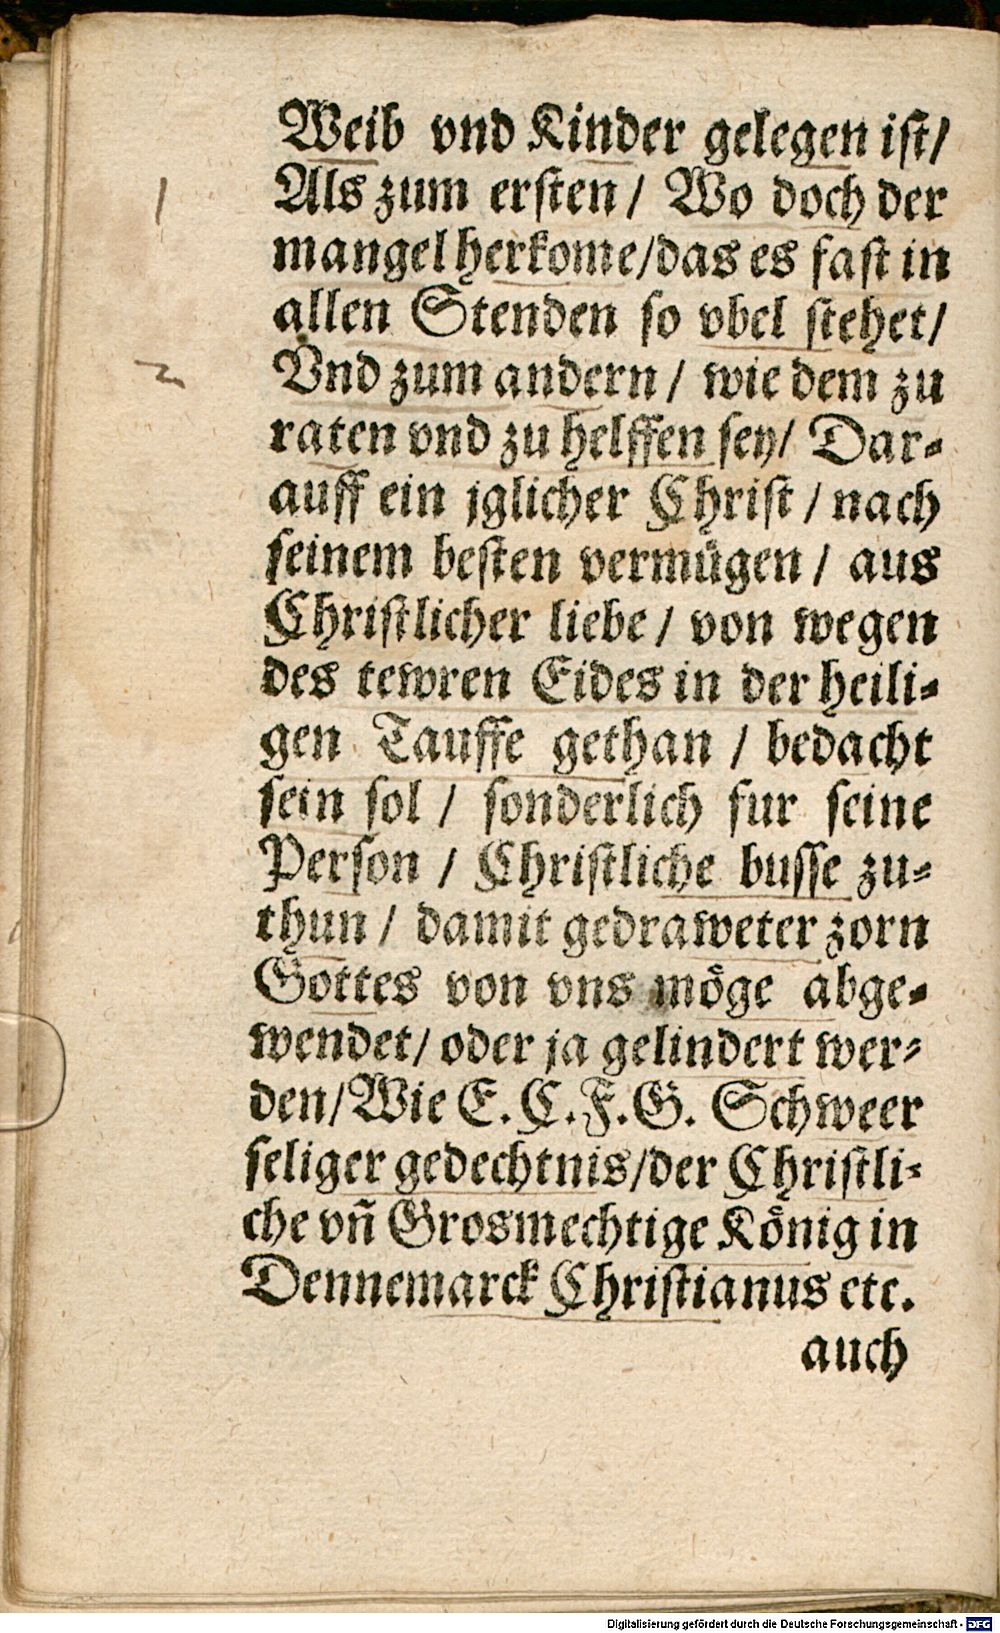 Weib vnd Kinder gelegen ist/
Als zum ersten / Wo doch der
mangel herkome/das es fast in
allen Stenden so vbel stehet/
Vnd zum andern / wie dem zu
raten vnd zu helffen sey/ Dar⸗
auff ein jglicher Christ / nach
seinem besten vermügen / aus
Christlicher liebe / von wegen
des tewren Eides in der heili⸗
gen Tauffe gethan / bedacht
sein sol / sonderlich fur seine
Person / Christliche busse zu⸗
thun / damit gedraweter zorn
Gottes von vns möge abge⸗
wendet/ oder ja gelindert wer⸗
den/Wie E. C. F. G. Schweer
seliger gedechtnis/der Christli⸗
che vñ Grosmechtige König in
Dennemarck Christianus etc.
auch
1
2
Digitalisierung gefördert durch die Deutsche Forschungsgemeinschaft - DFG